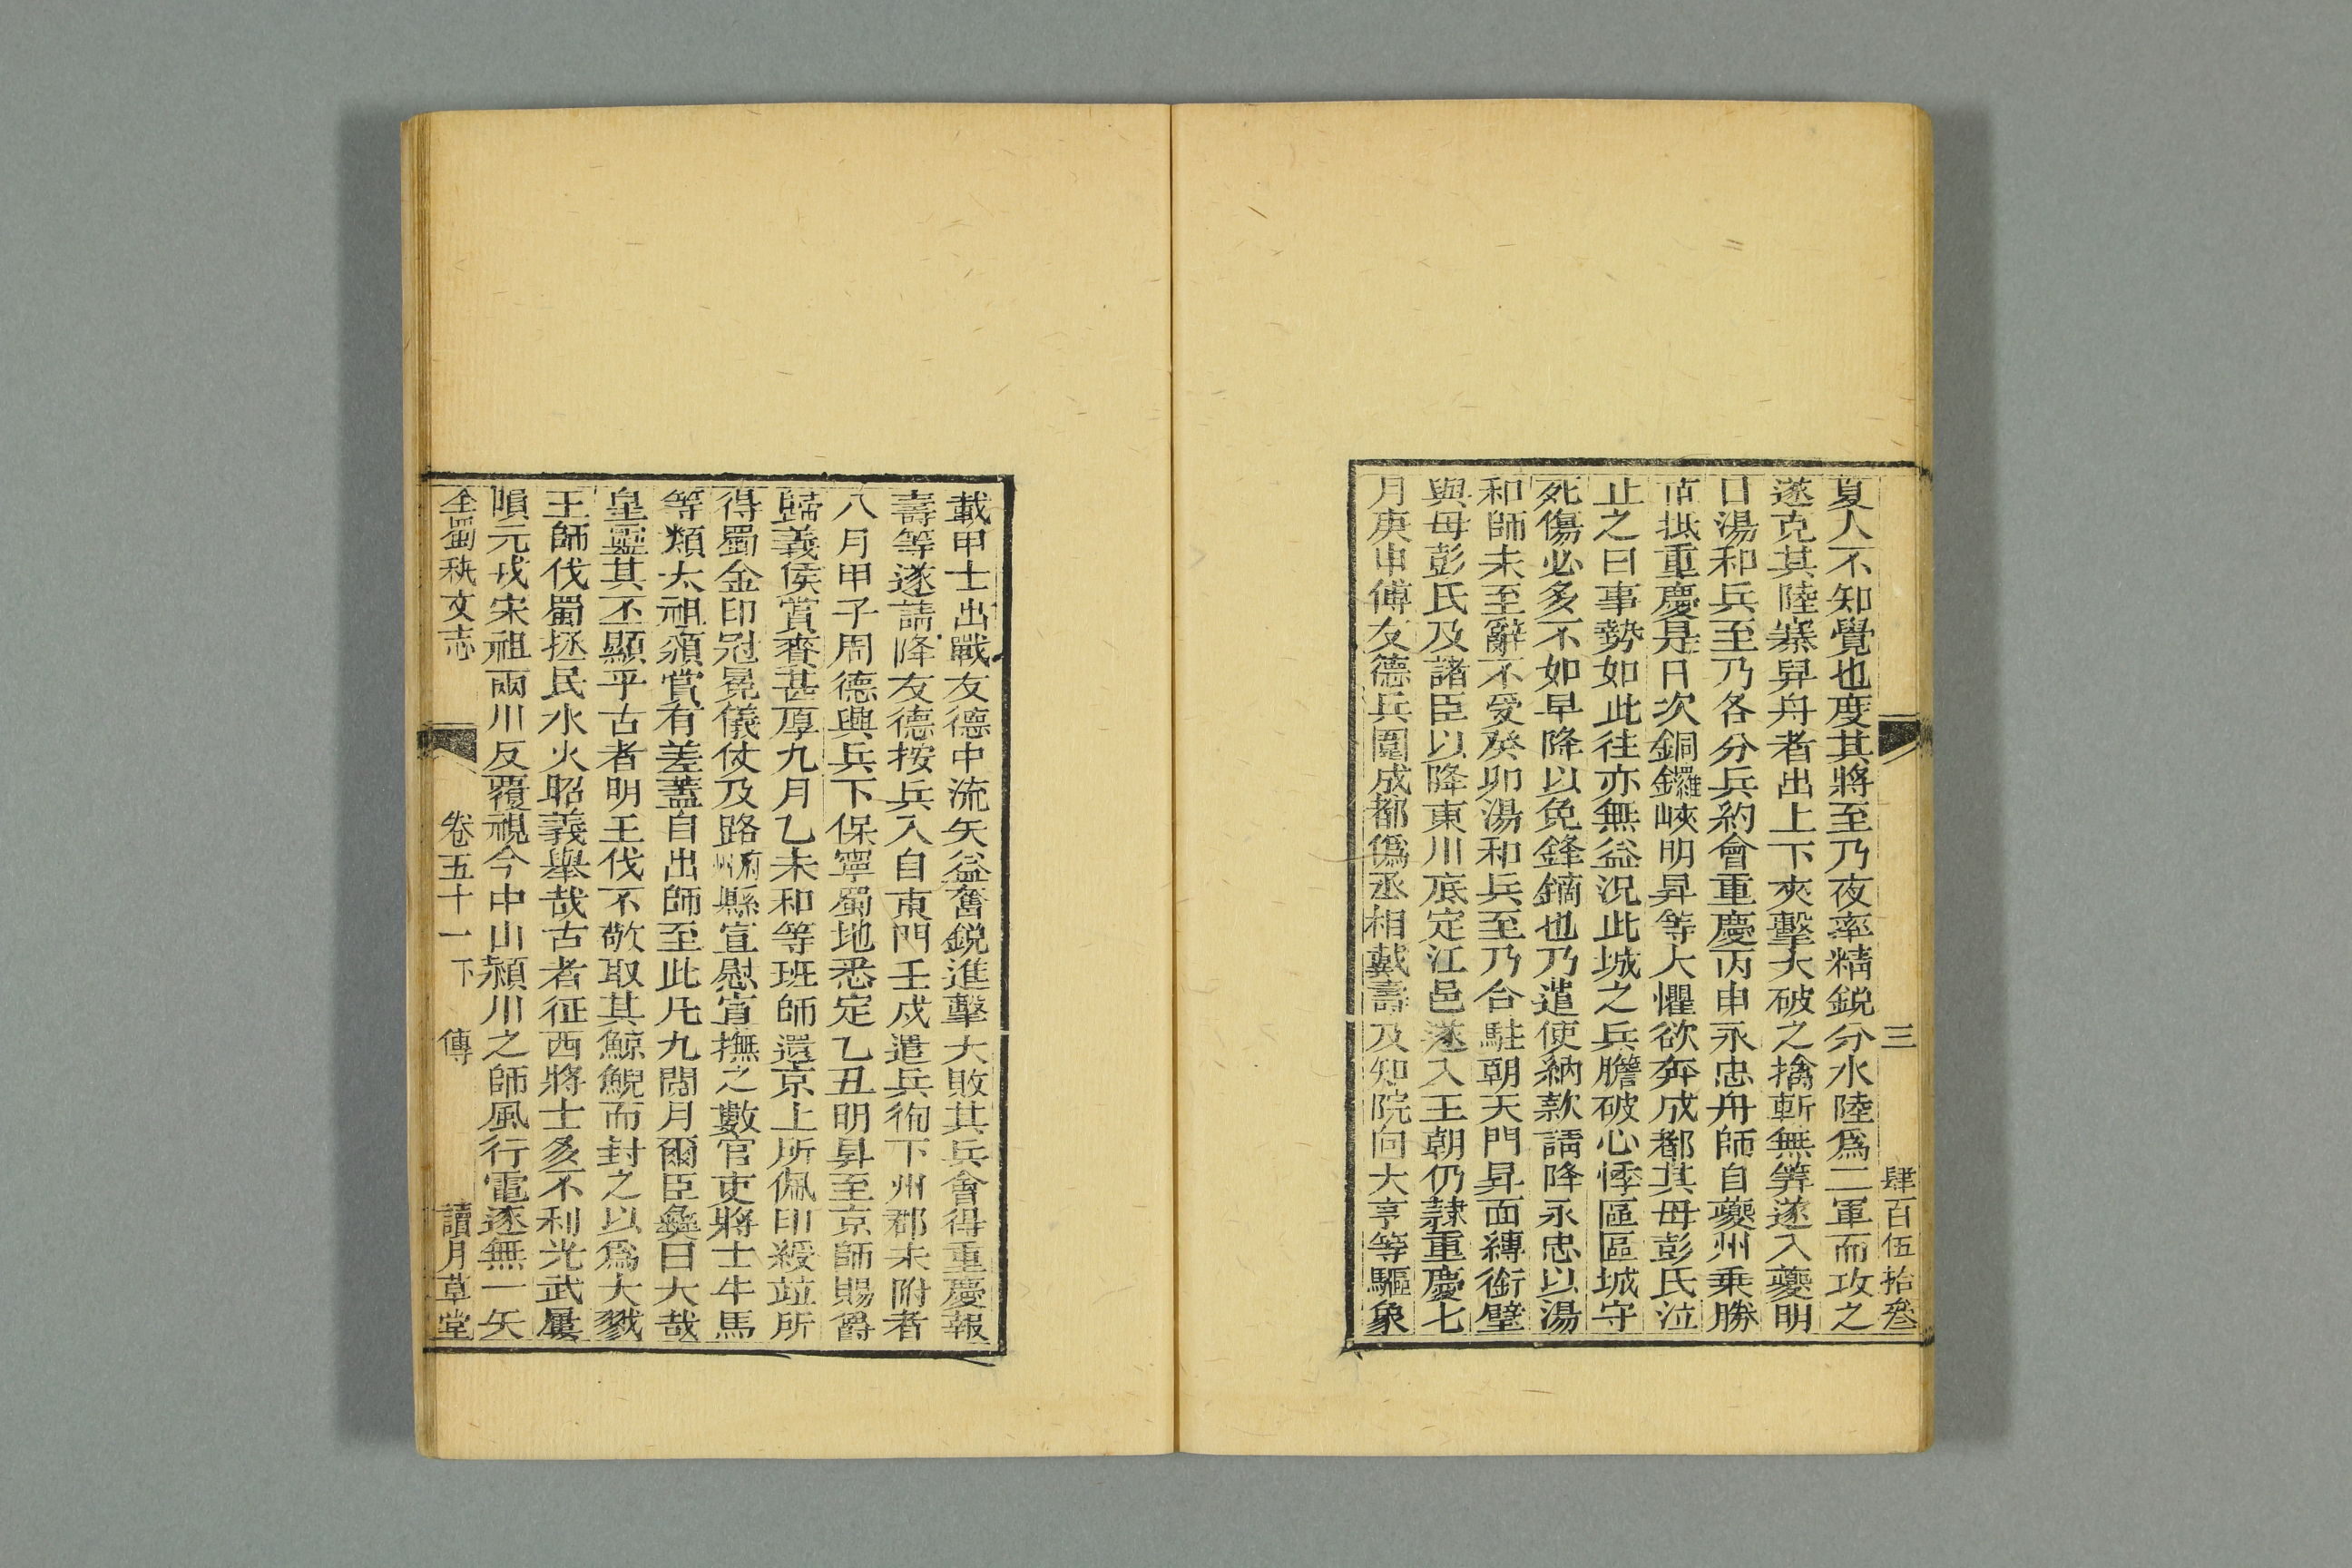 三 肆百伍拾叁
夏人不知覺也度其將至乃夜率精鋭分水陸爲二軍而攻之
遂克其陸寨舁舟者出上下夾擊大破之擒斬無筭遂入夔明
日湯和兵至乃各分兵約會重慶丙申永忠舟師自夔州乗勝
抵重慶是日次銅鑼峽明昇等大懼欲奔成都其母彭氏泣
止之曰事勢如此往亦無益况此城之兵膽破心悸區區城守
死傷必多不如早降以免鋒鏑也乃遣使納款請降永忠以湯
和師未至辭不受癸卯湯和兵至乃合駐朝天門昇面縛銜璧
與母彭氏及諸臣以降東川底定江邑遂入王朝仍隷重慶七
月庚申傅友德兵圍成都僞丞相戴壽及知院向大亨等驅象
載甲士出戰友德中流矢益奮鋭進擊大敗其兵會得重慶報
壽等遂請降友德按兵入自東門壬戍遣兵徇下州郡未附者
八月甲子周德興兵下保寧蜀地悉定乙丑明昇至京師賜爵
歸義侯賞賚甚厚九月乙未和等班師還京上所佩印綬竝所
得蜀金印冠冕儀仗及路府州縣宣慰宣撫之數官吏將士牛馬
等類太祖頒賞有差蓋自出師至此凡九閱月爾臣彝曰大哉
皇靈其丕顯乎古者明王伐不敬取其鯨鯢而封之以爲大戮
王師伐蜀拯民水火昭義舉哉古者征西將士多不利光武屢
嗔元戎宋祖兩川反覆視今中山潁川之師風行電逐無一矢
全蜀秇文志 卷五十一下 傳 讀月草堂